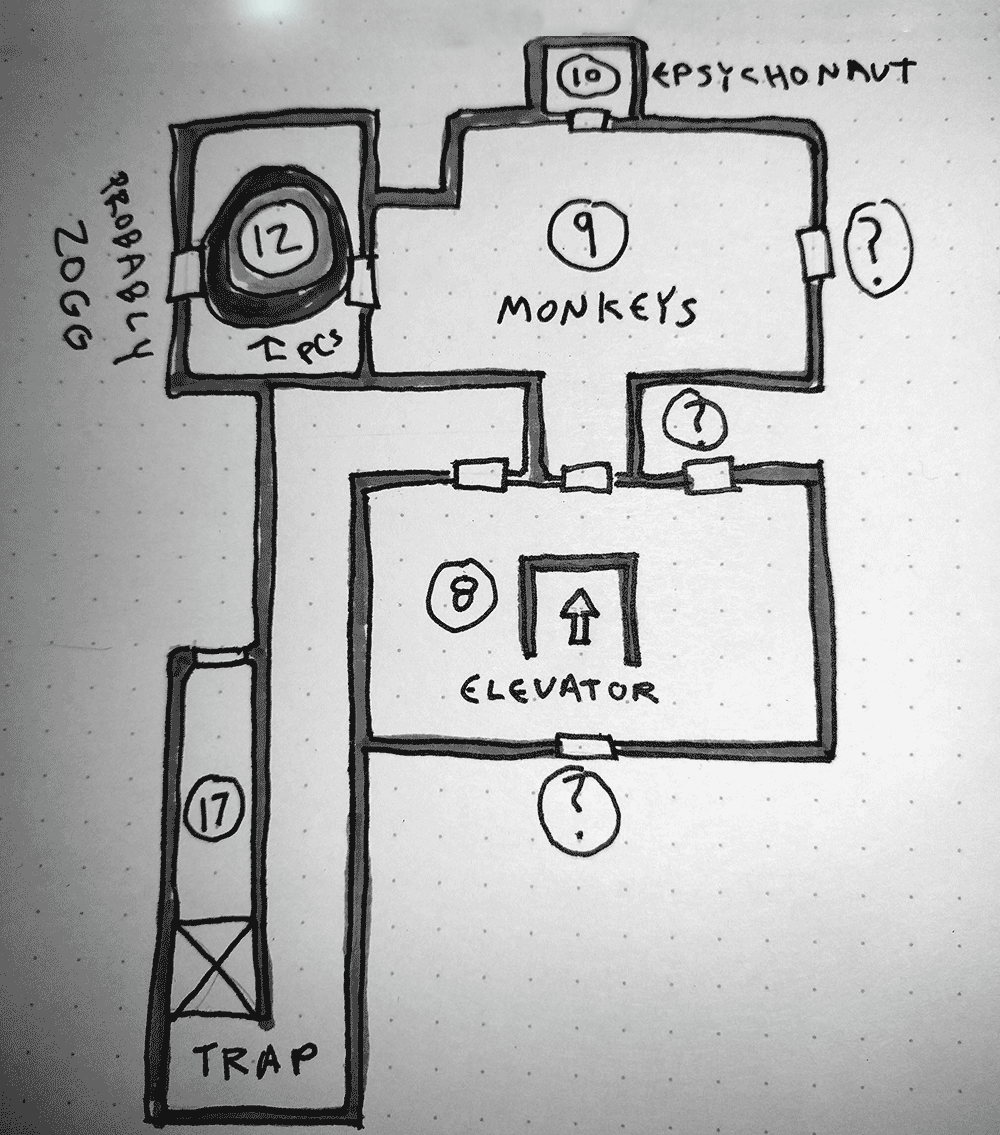 10
EPSYCHONAUT
PROBABLY
ZOGG
12
↑ PCS
9
MONKEYS
?
?
8
ELEVATOR
?
17
TRAP